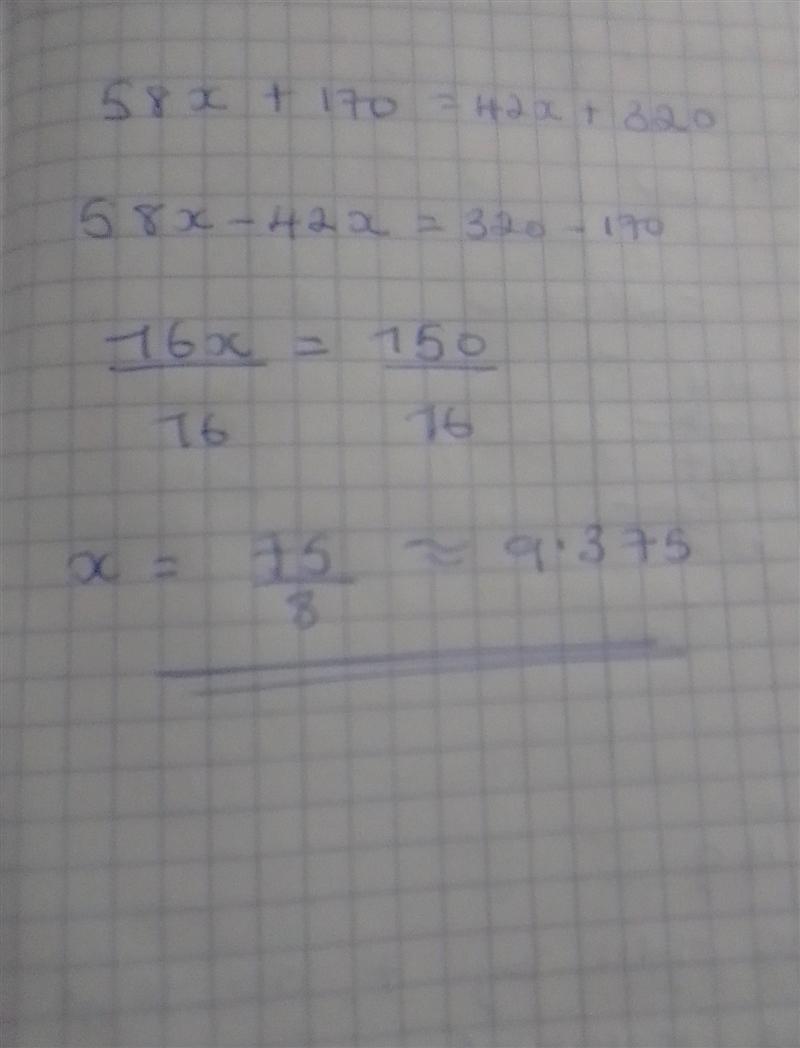 58x + 170 = 42x + 320
58x - 42x = 320 - 170
16x = 150
16 16
x = 75 ≈ 9.375
8